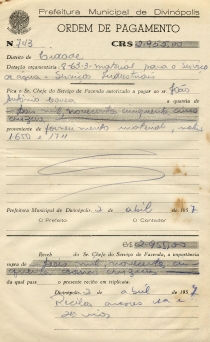 Prefeitura Municipal de Divinópolis
ORDEM DE PAGAMENTO
N 743 CR$ 2.955,00
Distrito de Cidade
Dotação orçamentária 8-63-3-material para o Serviço
de água - Serviços Industriais
Fica o Snr. Chefe do Serviço de Fazenda autorizado a pagar ao sr. João
Antonio a quantia de
dois mil, novecentos cinquenta cinco
cruzeiros
proveniente de fornecimento material,
1650 e 1711
Prefeitura Municipal de Divinópolis, 2 de abril de 1957
O Prefeito O Contador
Cr$ 2.955,00
Recebi do Sr. Chefe do Serviço de Fazenda, a importância
supra de dois mil, novecentos
cinquenta cinco cruzeiros
da qual passo o presente recibo em triplicata.
Divinópolis, 2 de abril de 1957